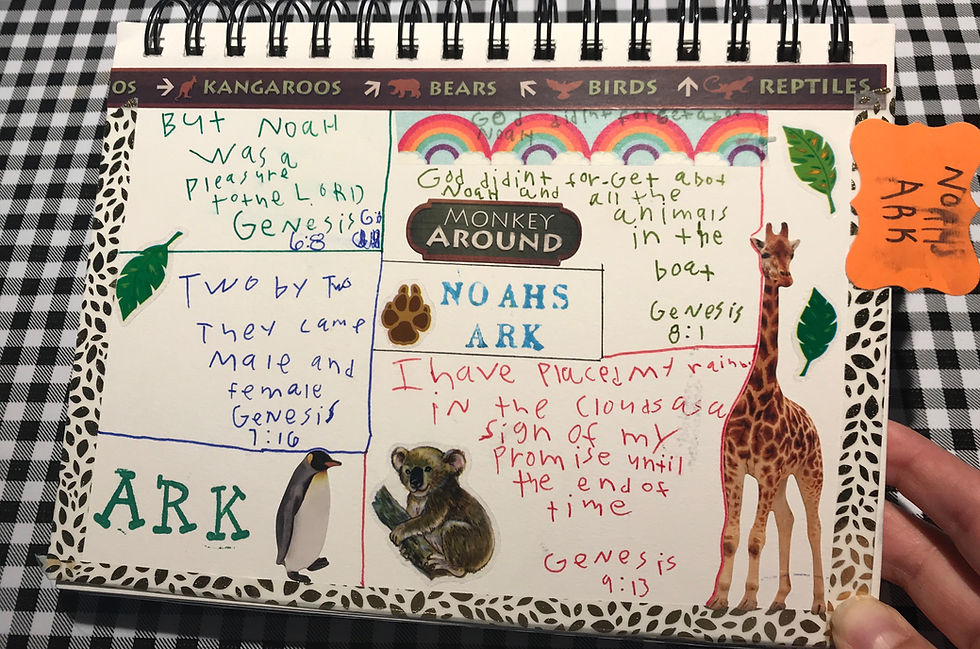 OS → KANGAROOS ↗ BEARS ↖ BIRDS ↑ REPTILES
But NOAH
was a
pleasure
tothe LORD
GENESIS
6:8
God didint forget abot
NOAH
God didint for-Get abot
NOAH and all the
animals
in the
boat
GENESIS
8:1
MONKEY
AROUND
NOAHS
ARK
NOAHS
ARK
Two by Two
They came
Male and
female
GENESIS
7:16
I have Placed My rainb
iN the Clouds as a
sign of my
Promise until
the end of
time
GENESIS
9:13
ARK